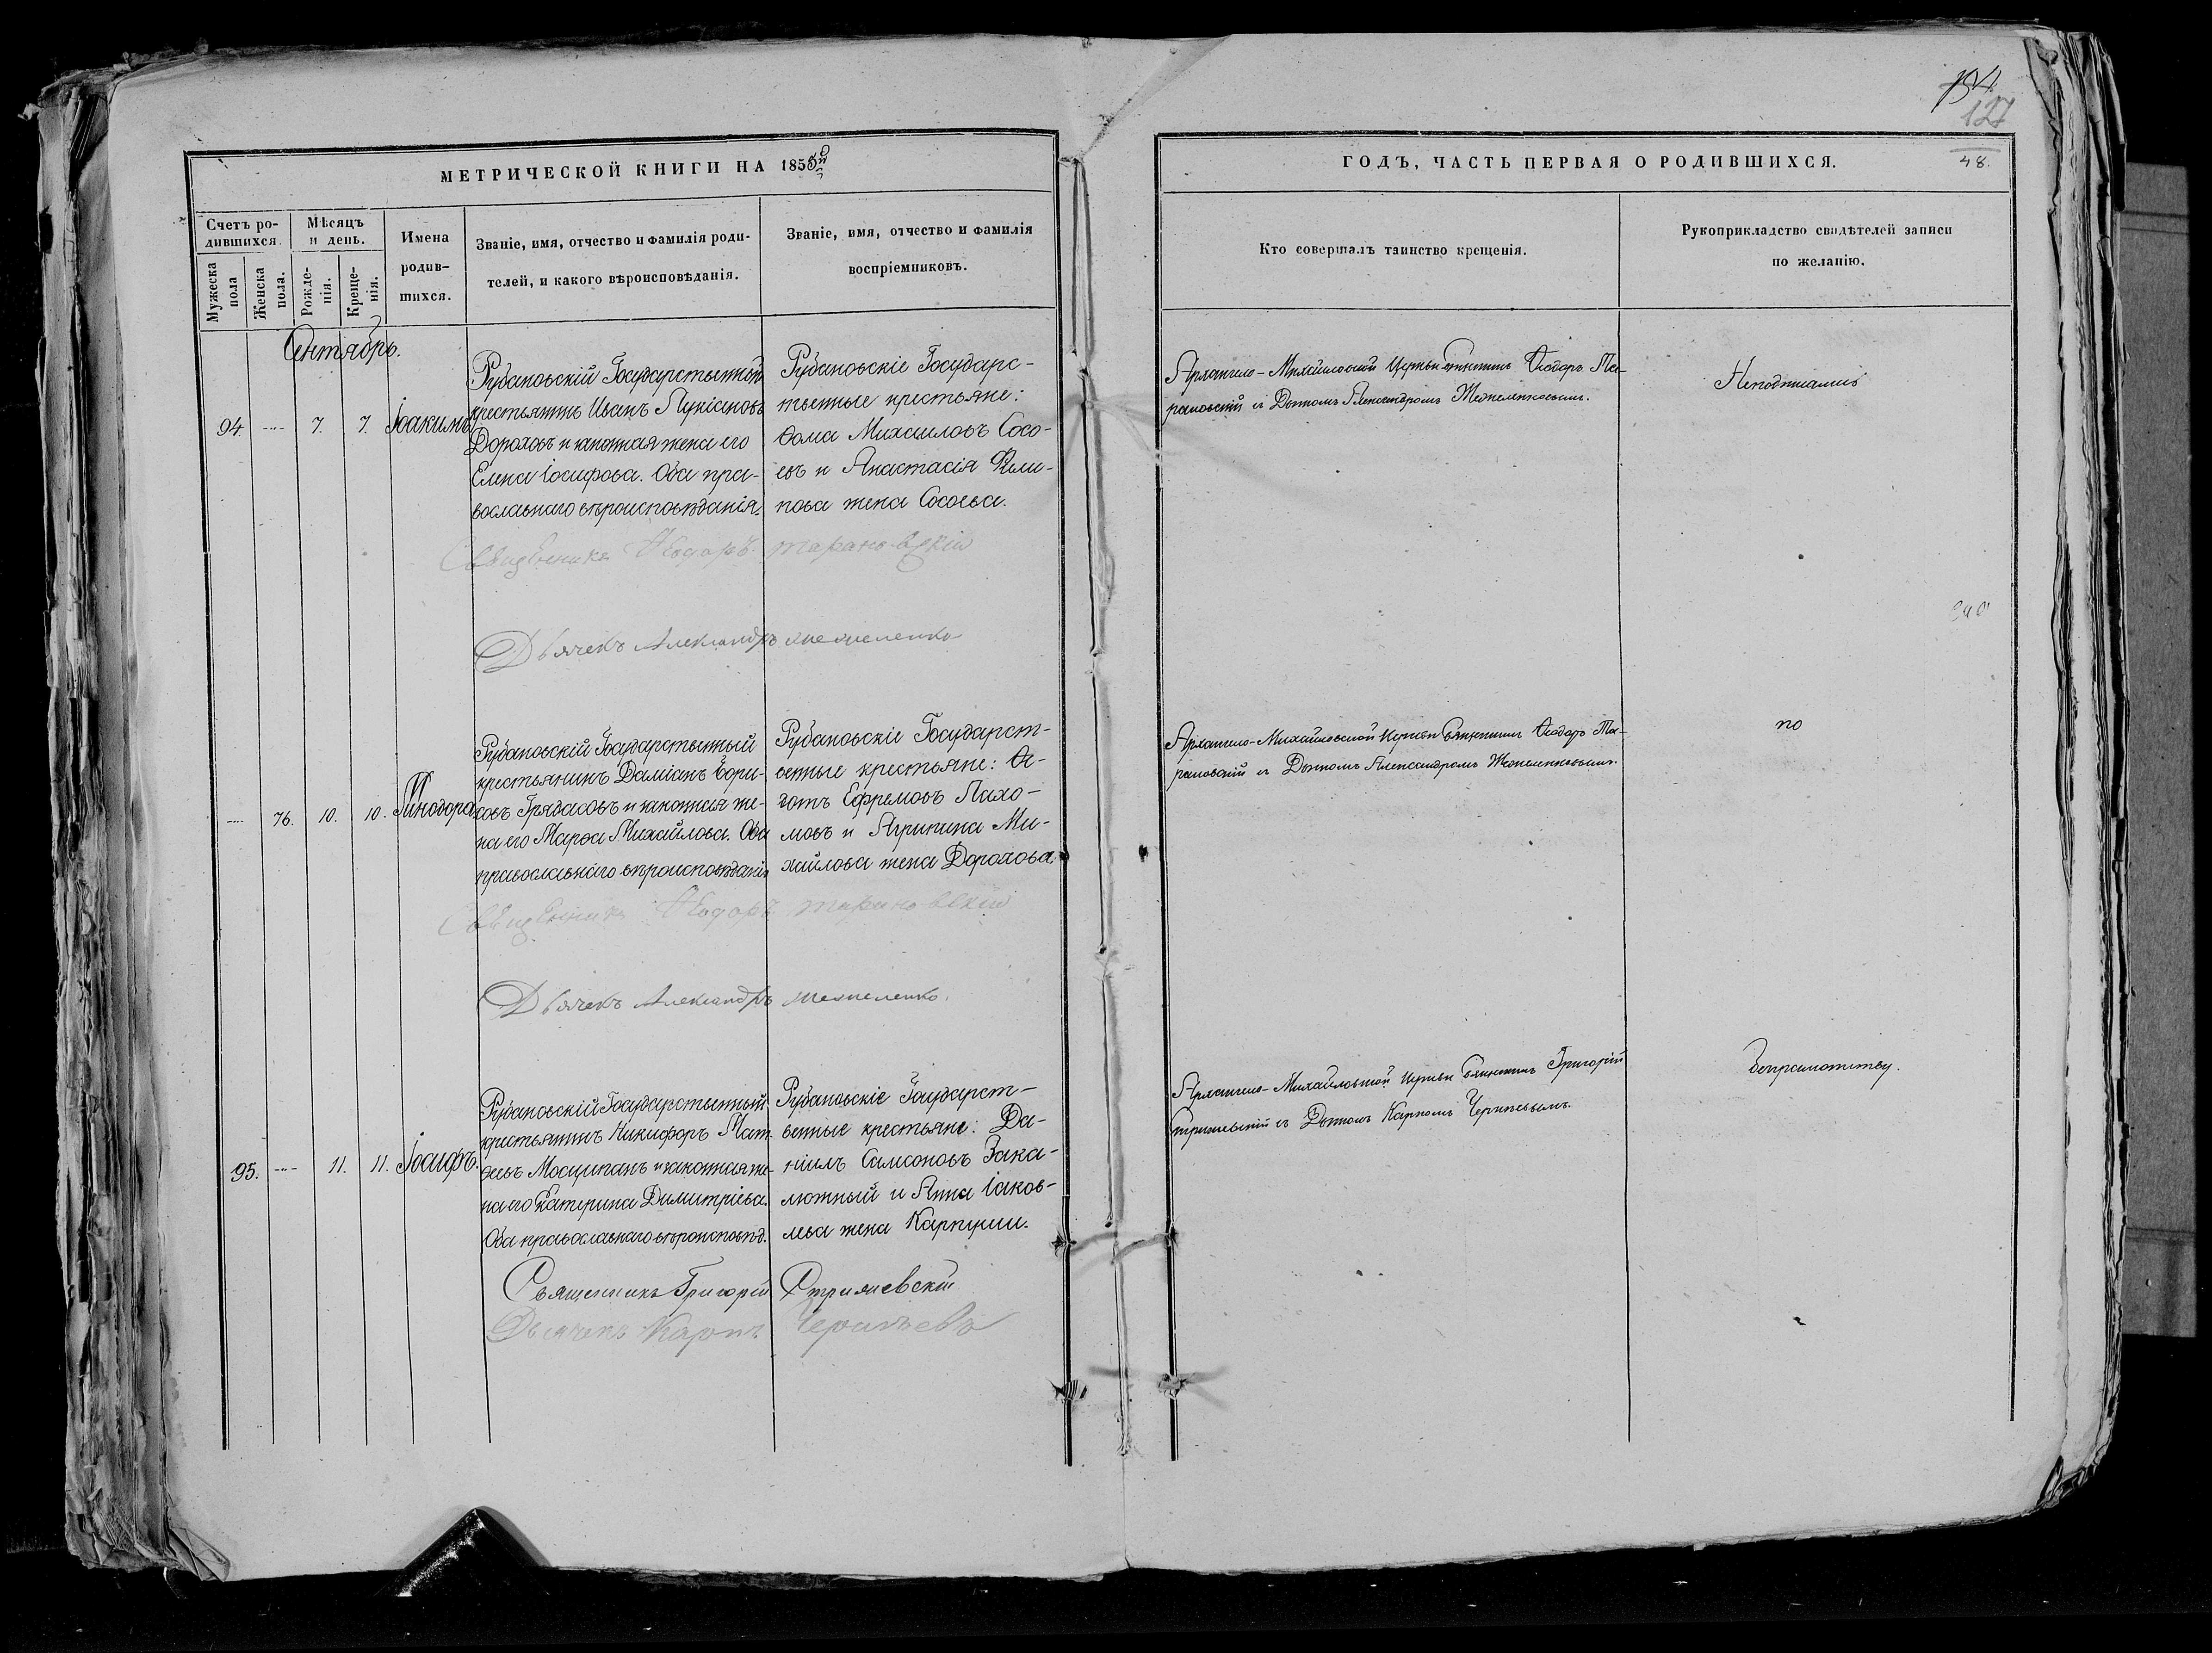 134.
127
МЕТРИЧЕСКОЙ КНИГИ НА 1855й
ГОДЪ, ЧАСТЬ ПЕРВАЯ О РОДИВШИХСЯ.
48.
Счетъ ро-
дившихся.
Мужеска пола
Женска пола.
Мѣсяцъ
и день.
Рожде-
нія.
Креще-
нія.
Имена
родив-
шихся.
Званіе, имя, отчество и фамилія роди-
телей, и какого вѣроисповѣданія.
Званіе, имя, отчество и фамилія
воспріемниковъ.
Кто совершалъ таинство крещенія.
Рукоприкладство свидѣтелей записи
по желанію.
Сентябрь.
94. 7. 7. Іоакимъ
Рубановскій Государственный
крестьянинъ Иванъ Лукіановъ
Дороховъ и законная жена его
Елена Іосифова. Оба пра-
вославнаго вѣроисповѣданія.
Рубановскіе Государс-
твенные крестьяне:
Ѳома Михаиловъ Сосо-
евъ и Анастасія Фили-
пова жена Сосоева.
Архангело-Михайловской Церкви Священникъ Ѳеодоръ Та-
рановскій съ Дьячкомъ Александромъ Межеленковымъ.
Неподписались
Священникъ Ѳеодоръ Тарановскій
Дьячекъ Александръ Межеленко
76. 10. 10. Минодора
Рубановскій Государственный
крестьянинъ Даміанъ Бори-
совъ Грядасовъ и законная же-
на его Марѳа Михайлова. Оба
православнаго вѣроисповѣданія
Рубановскіе Государст-
венные крестьяне: Ѳе-
дотъ Ефремовъ Пахо-
мовъ и Агрипина Ми-
хайлова жена Дорохова.
Архангело-Михайловской Церкви Священникъ Ѳеодоръ Та-
рановскій съ Дьячкомъ Александромъ Межеленковымъ.
по
Священникъ Ѳеодоръ Тарановскій
Дьячекъ Александръ Межеленко.
95. 11. 11. Іосифъ.
Рубановскій Государственный
крестьянинъ Никифоръ Мат-
ѳеевъ Мосципанъ и законная же-
на его Екатерина Димитріева.
Оба православнаго вѣроисповѣд.
Рубановскіе Государст-
венные крестьяне: Да-
ніилъ Самсоновъ Зака-
люжный и Анна Іаков-
лева жена Карпуши.
Архангело-Михайловской Церкви Священникъ Григорій
Стрижевскій съ Дьячкомъ Карпомъ Чернѣевымъ.
безграмотству.
Священникъ Григорій Стрижевскій
Дьячекъ Карпъ Чернѣевъ